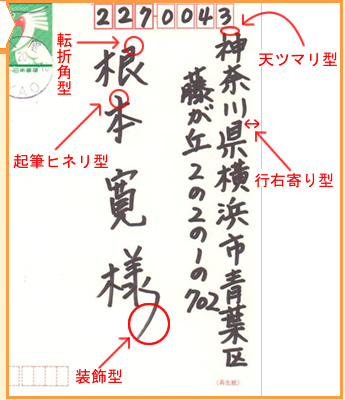 2270043
神奈川県横浜市青葉区
藤が丘2の2の1の702
根本寛様
天ツマリ型
転折角型
起筆ヒネリ型
行右寄り型
装飾型
(再生紙)